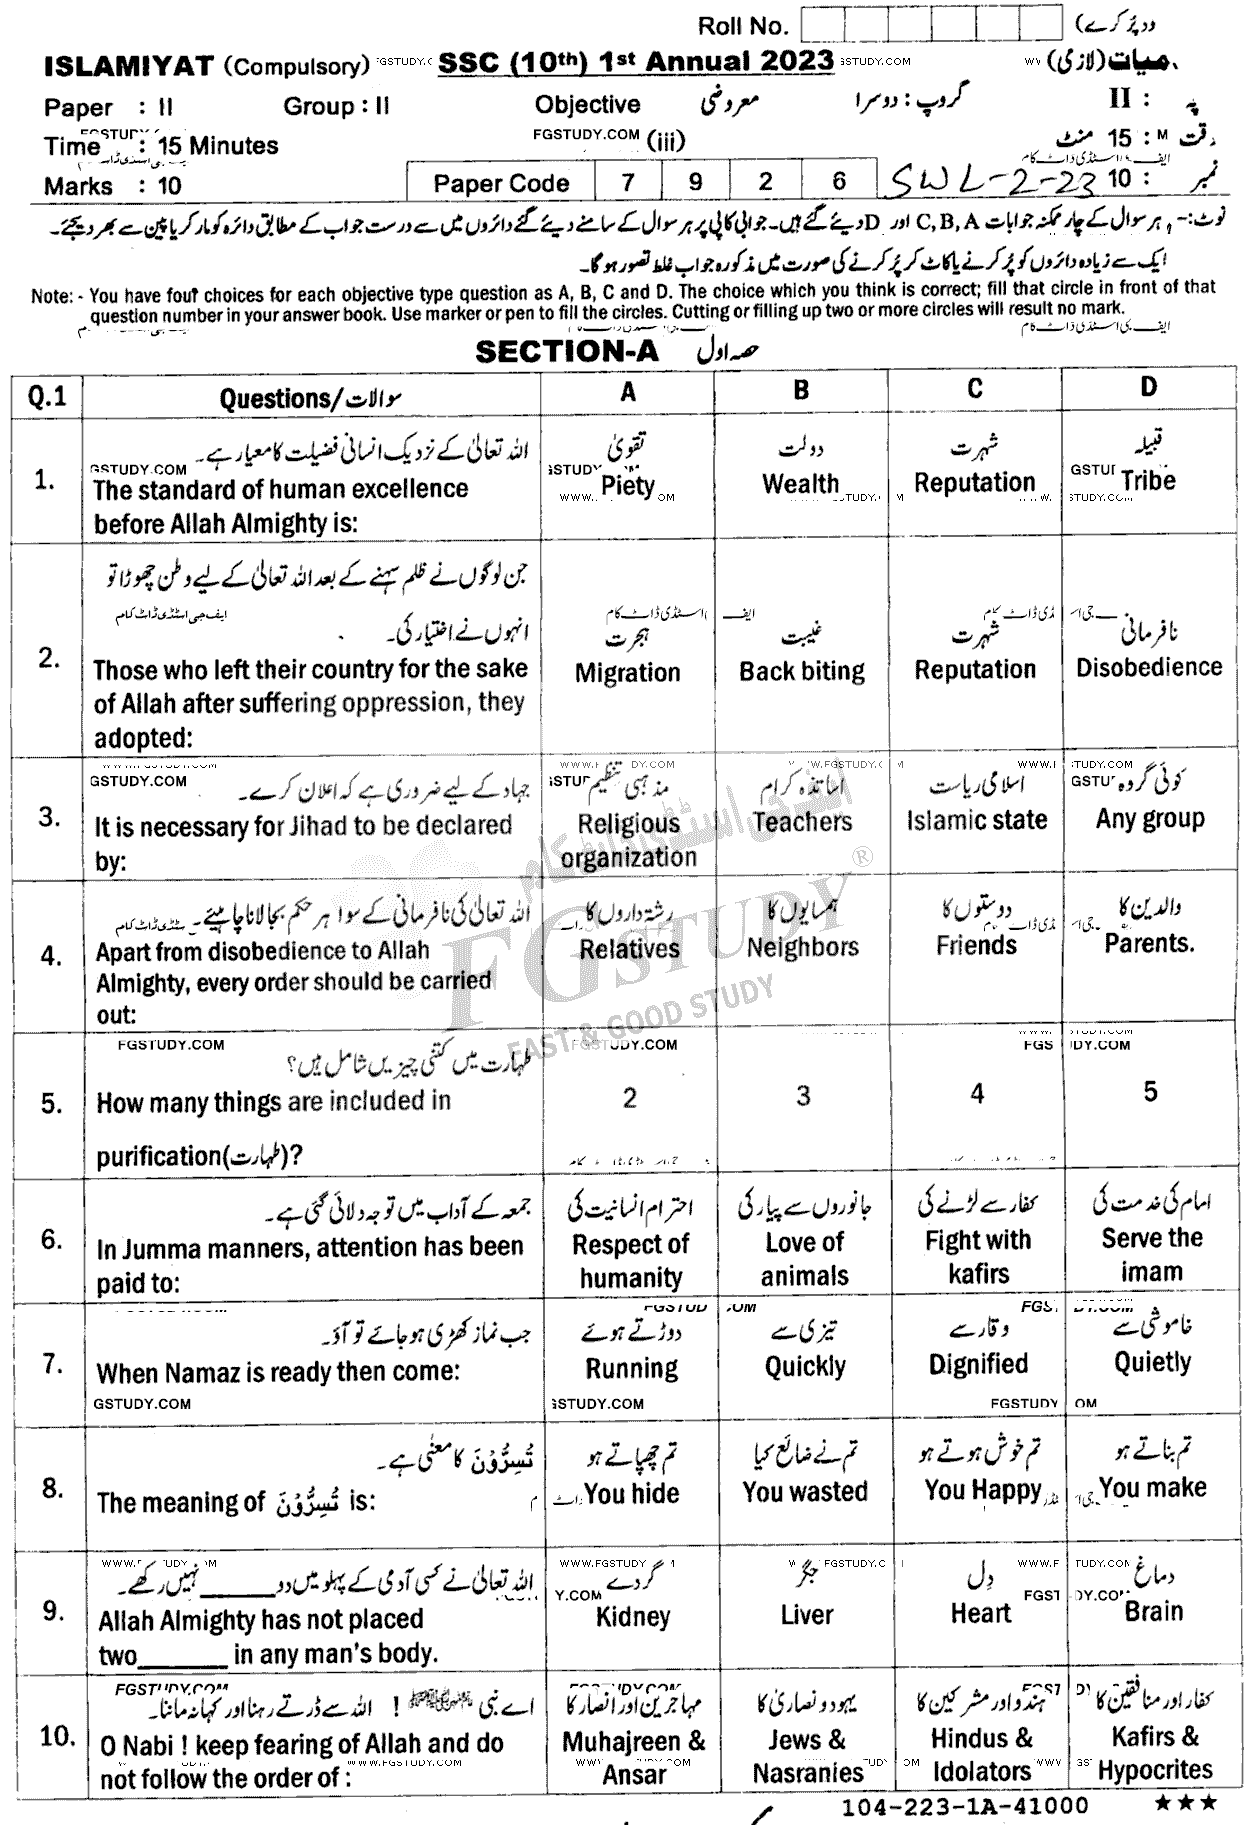 Roll No. (ود پُر کرے
ISLAMIYAT (Compulsory) SSC (10th) 1st Annual 2023 میات (لازمی)
Paper : II Group : II Objective معروضی گروپ : دوسرا II :
Time : 15 Minutes FGSTUDY.COM (iii) وقت : 15 منٹ
Marks : 10 Paper Code 7 9 2 6 SWL-2-23 10 : نمبر
نوٹ:- ہر سوال کے چار ممکنہ جوابات C, B, A اور D دیئے گئے ہیں۔ جوابی کاپی پر ہر سوال کے سامنے دیئے گئے دائروں میں سے درست جواب کے مطابق دائرہ کو مارکر یا پین سے بھر دیجئے۔
ایک سے زیادہ دائروں کو پُر کرنے یا کاٹ کر پُر کرنے کی صورت میں مذکورہ جواب غلط تصور ہو گا۔
Note: - You have four choices for each objective type question as A, B, C and D. The choice which you think is correct; fill that circle in front of that
question number in your answer book. Use marker or pen to fill the circles. Cutting or filling up two or more circles will result no mark.
SECTION-A حصہ اول
Q.1 Questions/سوالات A B C D
1. اللہ تعالیٰ کے نزدیک انسانی فضیلت کا معیار ہے۔ تقویٰ دولت شہرت قبیلہ
The standard of human excellence Piety Wealth Reputation Tribe
before Allah Almighty is:
جن لوگوں نے ظلم سہنے کے بعد اللہ تعالیٰ کے لیے وطن چھوڑا تو
انہوں نے اختیار کی۔ ہجرت غیبت شہرت نافرمانی
2. Those who left their country for the sake Migration Back biting Reputation Disobedience
of Allah after suffering oppression, they
adopted:
جہاد کے لیے ضروری ہے کہ اعلان کرے۔ مذہبی تنظیم اساتذہ کرام اسلامی ریاست کوئی گروہ
3. It is necessary for Jihad to be declared Religious Teachers Islamic state Any group
by: organization
اللہ تعالیٰ کی نافرمانی کے سوا ہر حکم بجا لانا چاہیئے۔ رشتہ داروں کا ہمسایوں کا دوستوں کا والدین کا
4. Apart from disobedience to Allah Relatives Neighbors Friends Parents.
Almighty, every order should be carried
out:
طہارت میں کتنی چیزیں شامل ہیں؟
5. How many things are included in 2 3 4 5
purification(طہارت)?
جمعہ کے آداب میں توجہ دلائی گئی ہے۔ احترام انسانیت کی جانوروں سے پیار کی کفار سے لڑنے کی امام کی خدمت کی
6. In Jumma manners, attention has been Respect of Love of Fight with Serve the
paid to: humanity animals kafirs imam
جب نماز کھڑی ہو جائے تو آؤ۔ دوڑتے ہوئے تیزی سے وقار سے خاموشی سے
7. When Namaz is ready then come: Running Quickly Dignified Quietly
تُسِرُّوْنَ کا معنٰی ہے۔ تم چھپاتے ہو تم نے ضائع کیا تم خوش ہوتے ہو تم بناتے ہو
8. The meaning of تُسِرُّوْنَ is: You hide You wasted You Happy You make
اللہ تعالیٰ نے کسی آدمی کے پہلو میں دو ______ نہیں رکھے۔ گردے جگر دِل دماغ
9. Allah Almighty has not placed Kidney Liver Heart Brain
two_______ in any man's body.
اے نبی ﷺ ! اللہ سے ڈرتے رہنا اور کہا نہ ماننا۔ مہاجرین اور انصار کا یہود و نصاریٰ کا ہندو اور مشرکین کا کفار اور منافقین کا
10. O Nabi ! keep fearing of Allah and do Muhajreen & Jews & Hindus & Kafirs &
not follow the order of : Ansar Nasranies Idolators Hypocrites
104-223-1A-41000 ★★★
FGSTUDY ®
FAST & GOOD STUDY